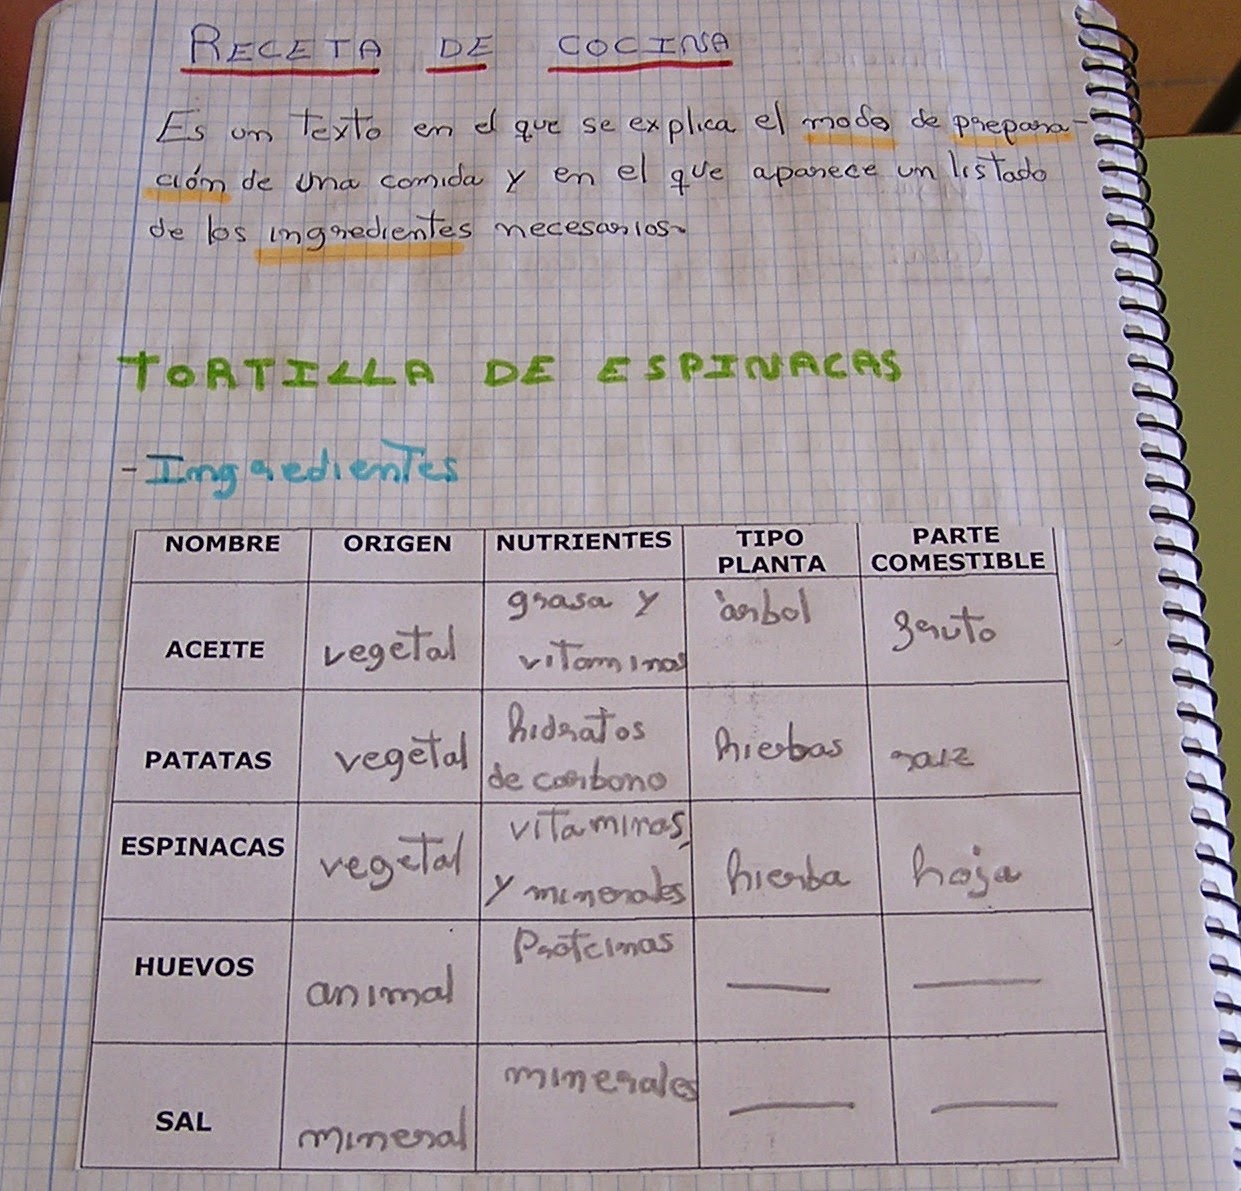 RECETA DE COCINA
Es un texto en el que se explica el modo de prepara-
ción de una comida y en el que aparece un listado
de los ingredientes necesarios.
TORTILLA DE ESPINACAS
- Ingredientes
NOMBRE ORIGEN NUTRIENTES TIPO PLANTA PARTE COMESTIBLE
ACEITE vegetal grasa y vitaminas árbol fruto
PATATAS vegetal hidratos de carbono hierbas raiz
ESPINACAS vegetal vitaminas y minerales hierba hoja
HUEVOS animal Proteinas — —
SAL mineral minerales — —